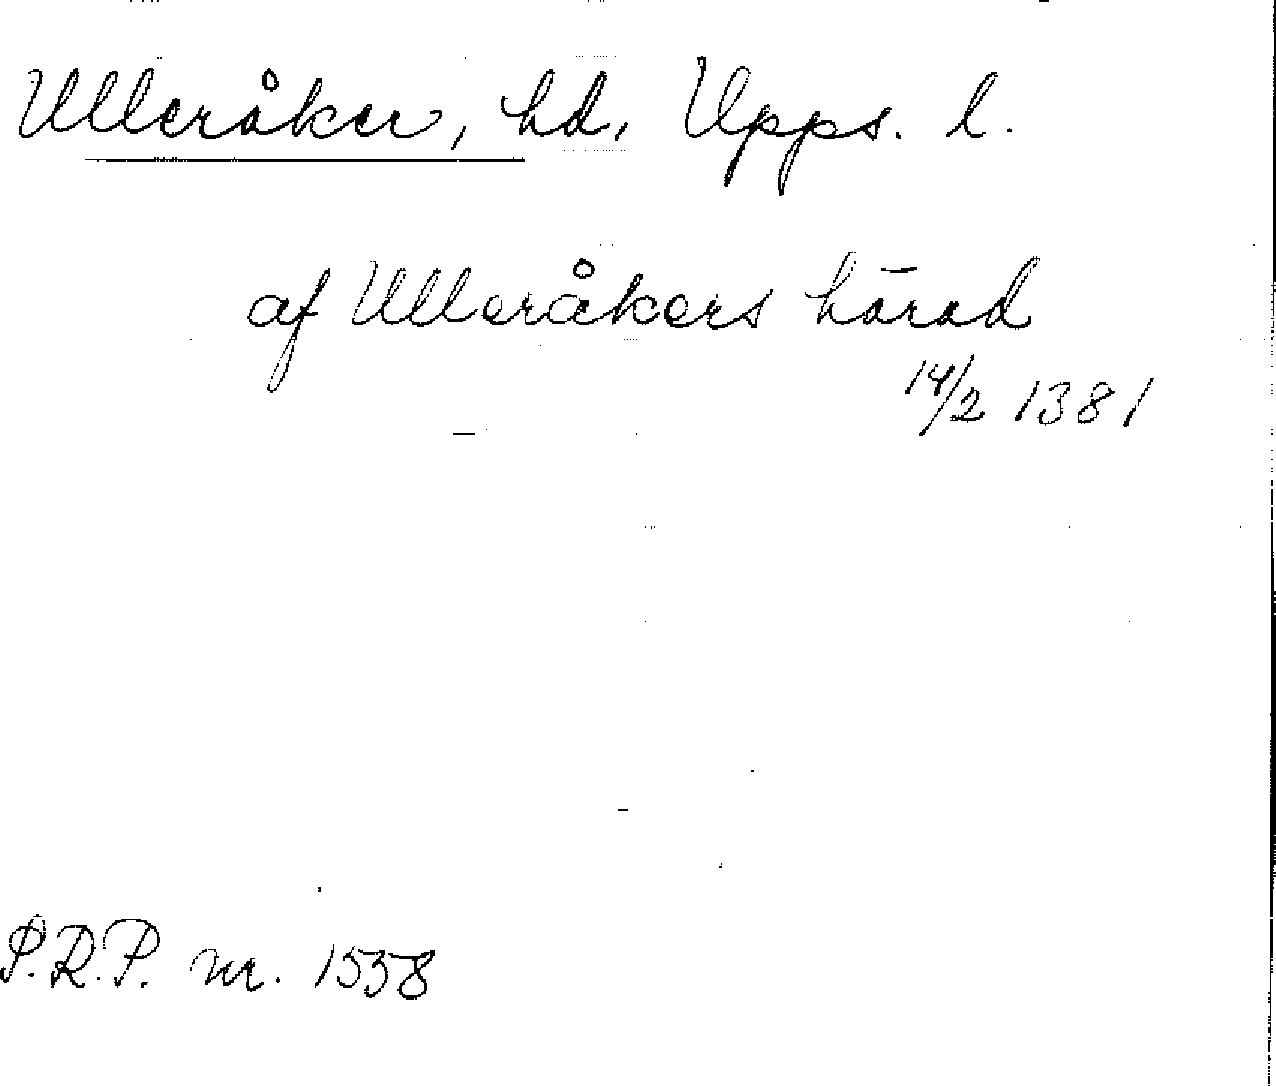 Ulleråker, hd, Upps. l.
af Ulleråkers härad
14/2 1381
S.R.P. nr. 1558